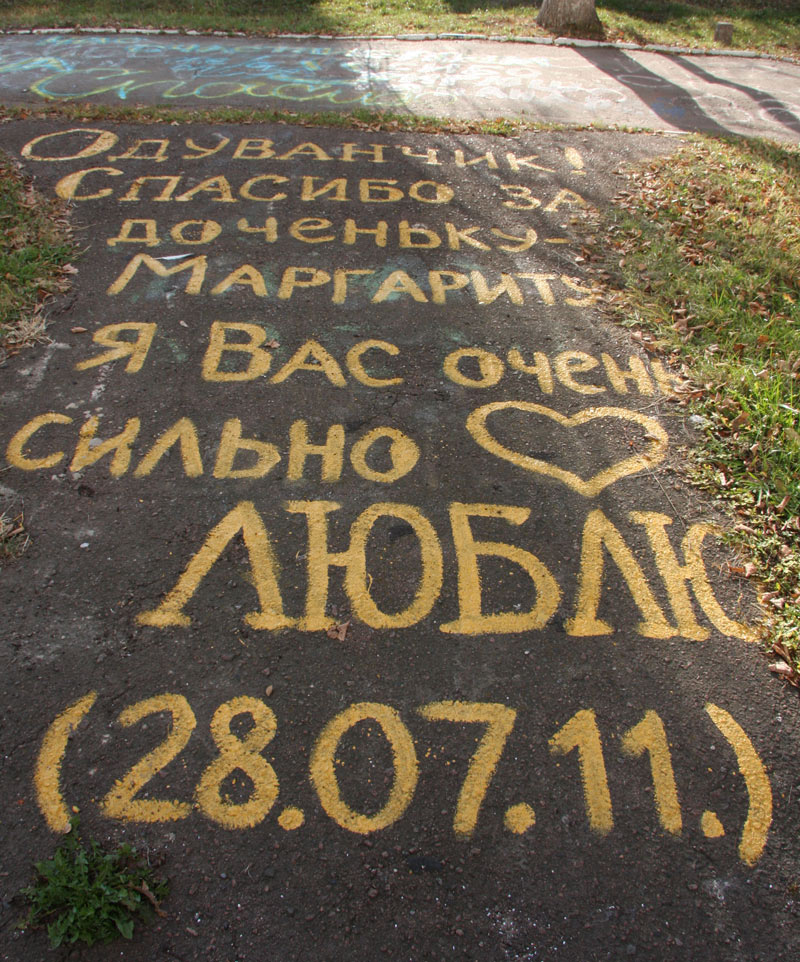 Одуванчик!
Спасибо за
доченьку-
Маргариту
Я Вас очень
сильно
ЛЮБЛЮ
(28.07.11.)